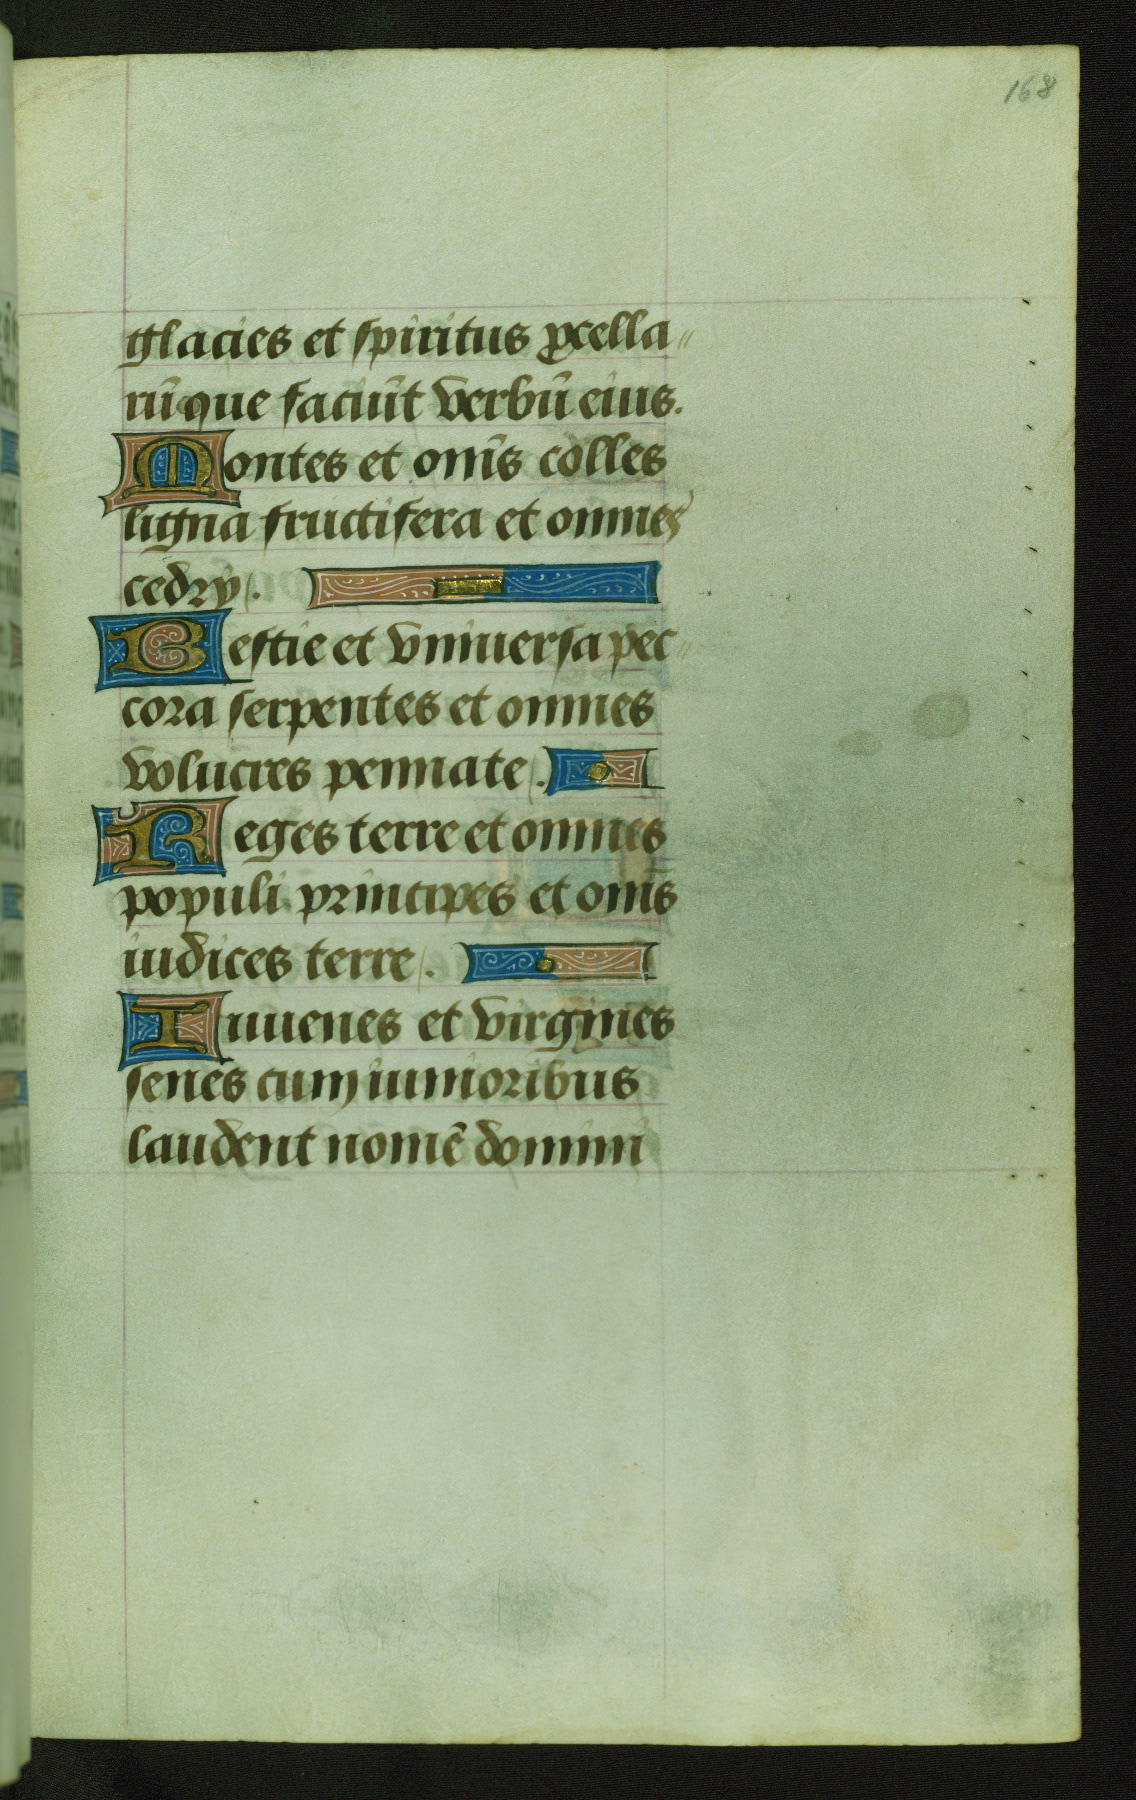 168
glacies et spiritus ꝓcella〃
rū que faciūt verbū eius.
Montes et om̄s colles
ligna fructifera et omnes
cedry.
Bestie et vniuersa pec〃
cora serpentes et omnes
volucres pennate.
Reges terre et omnes
populi principes et om̄s
iudices terre.
Iuuenes et virgines
senes cum iunioribus
laudent nomē domini